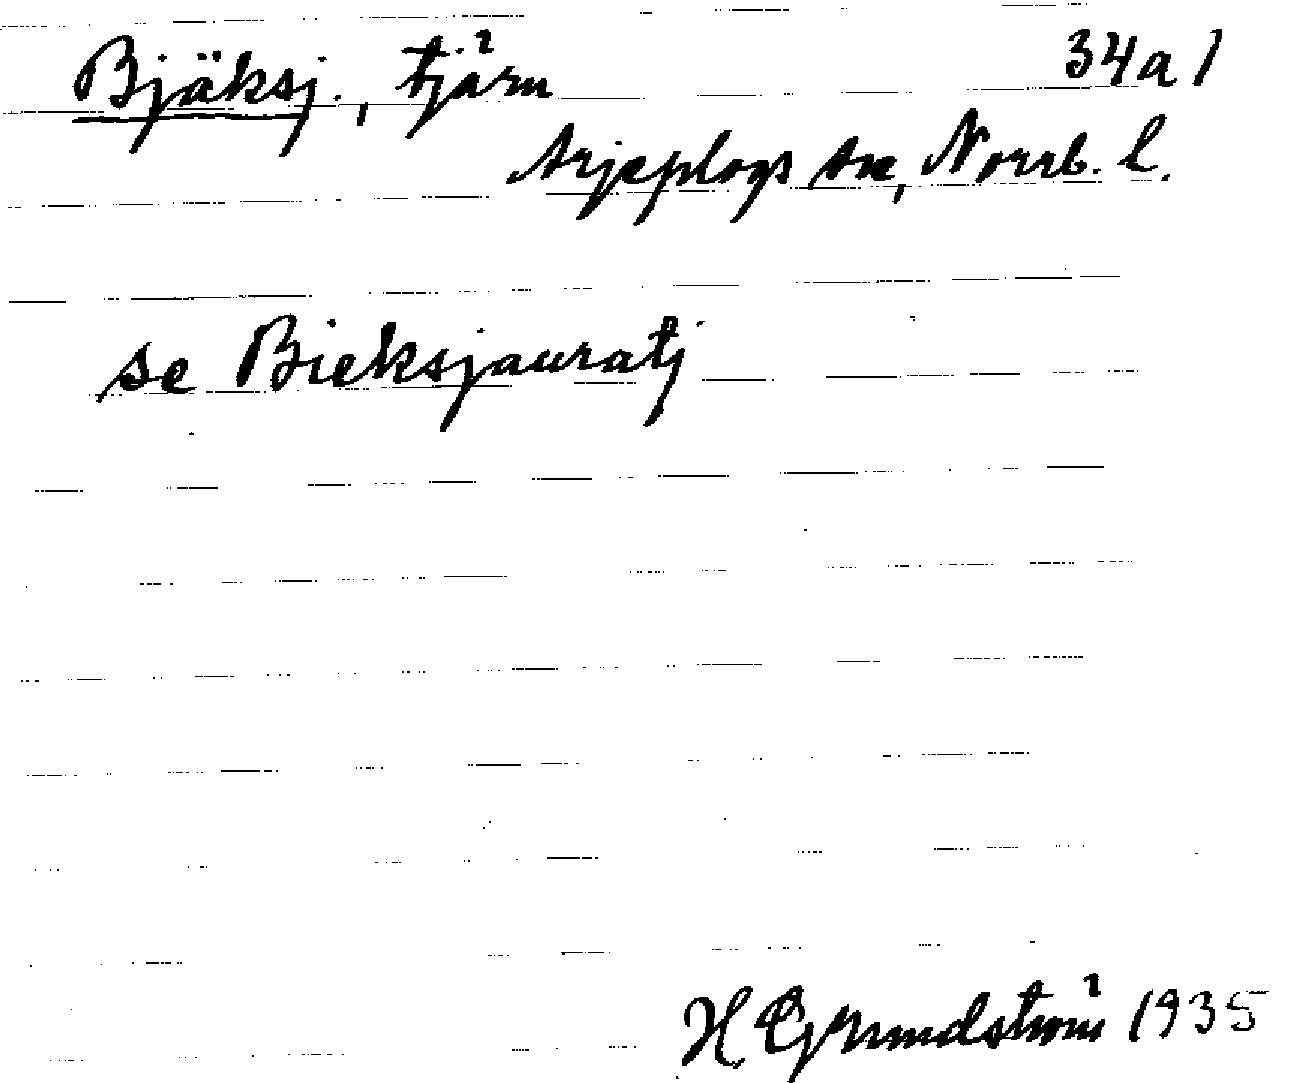 Bjäksj., tjärn 34a1
Arjeplogs sn, Norrb. l.
se Bieksjauratj
H Grundström 1935